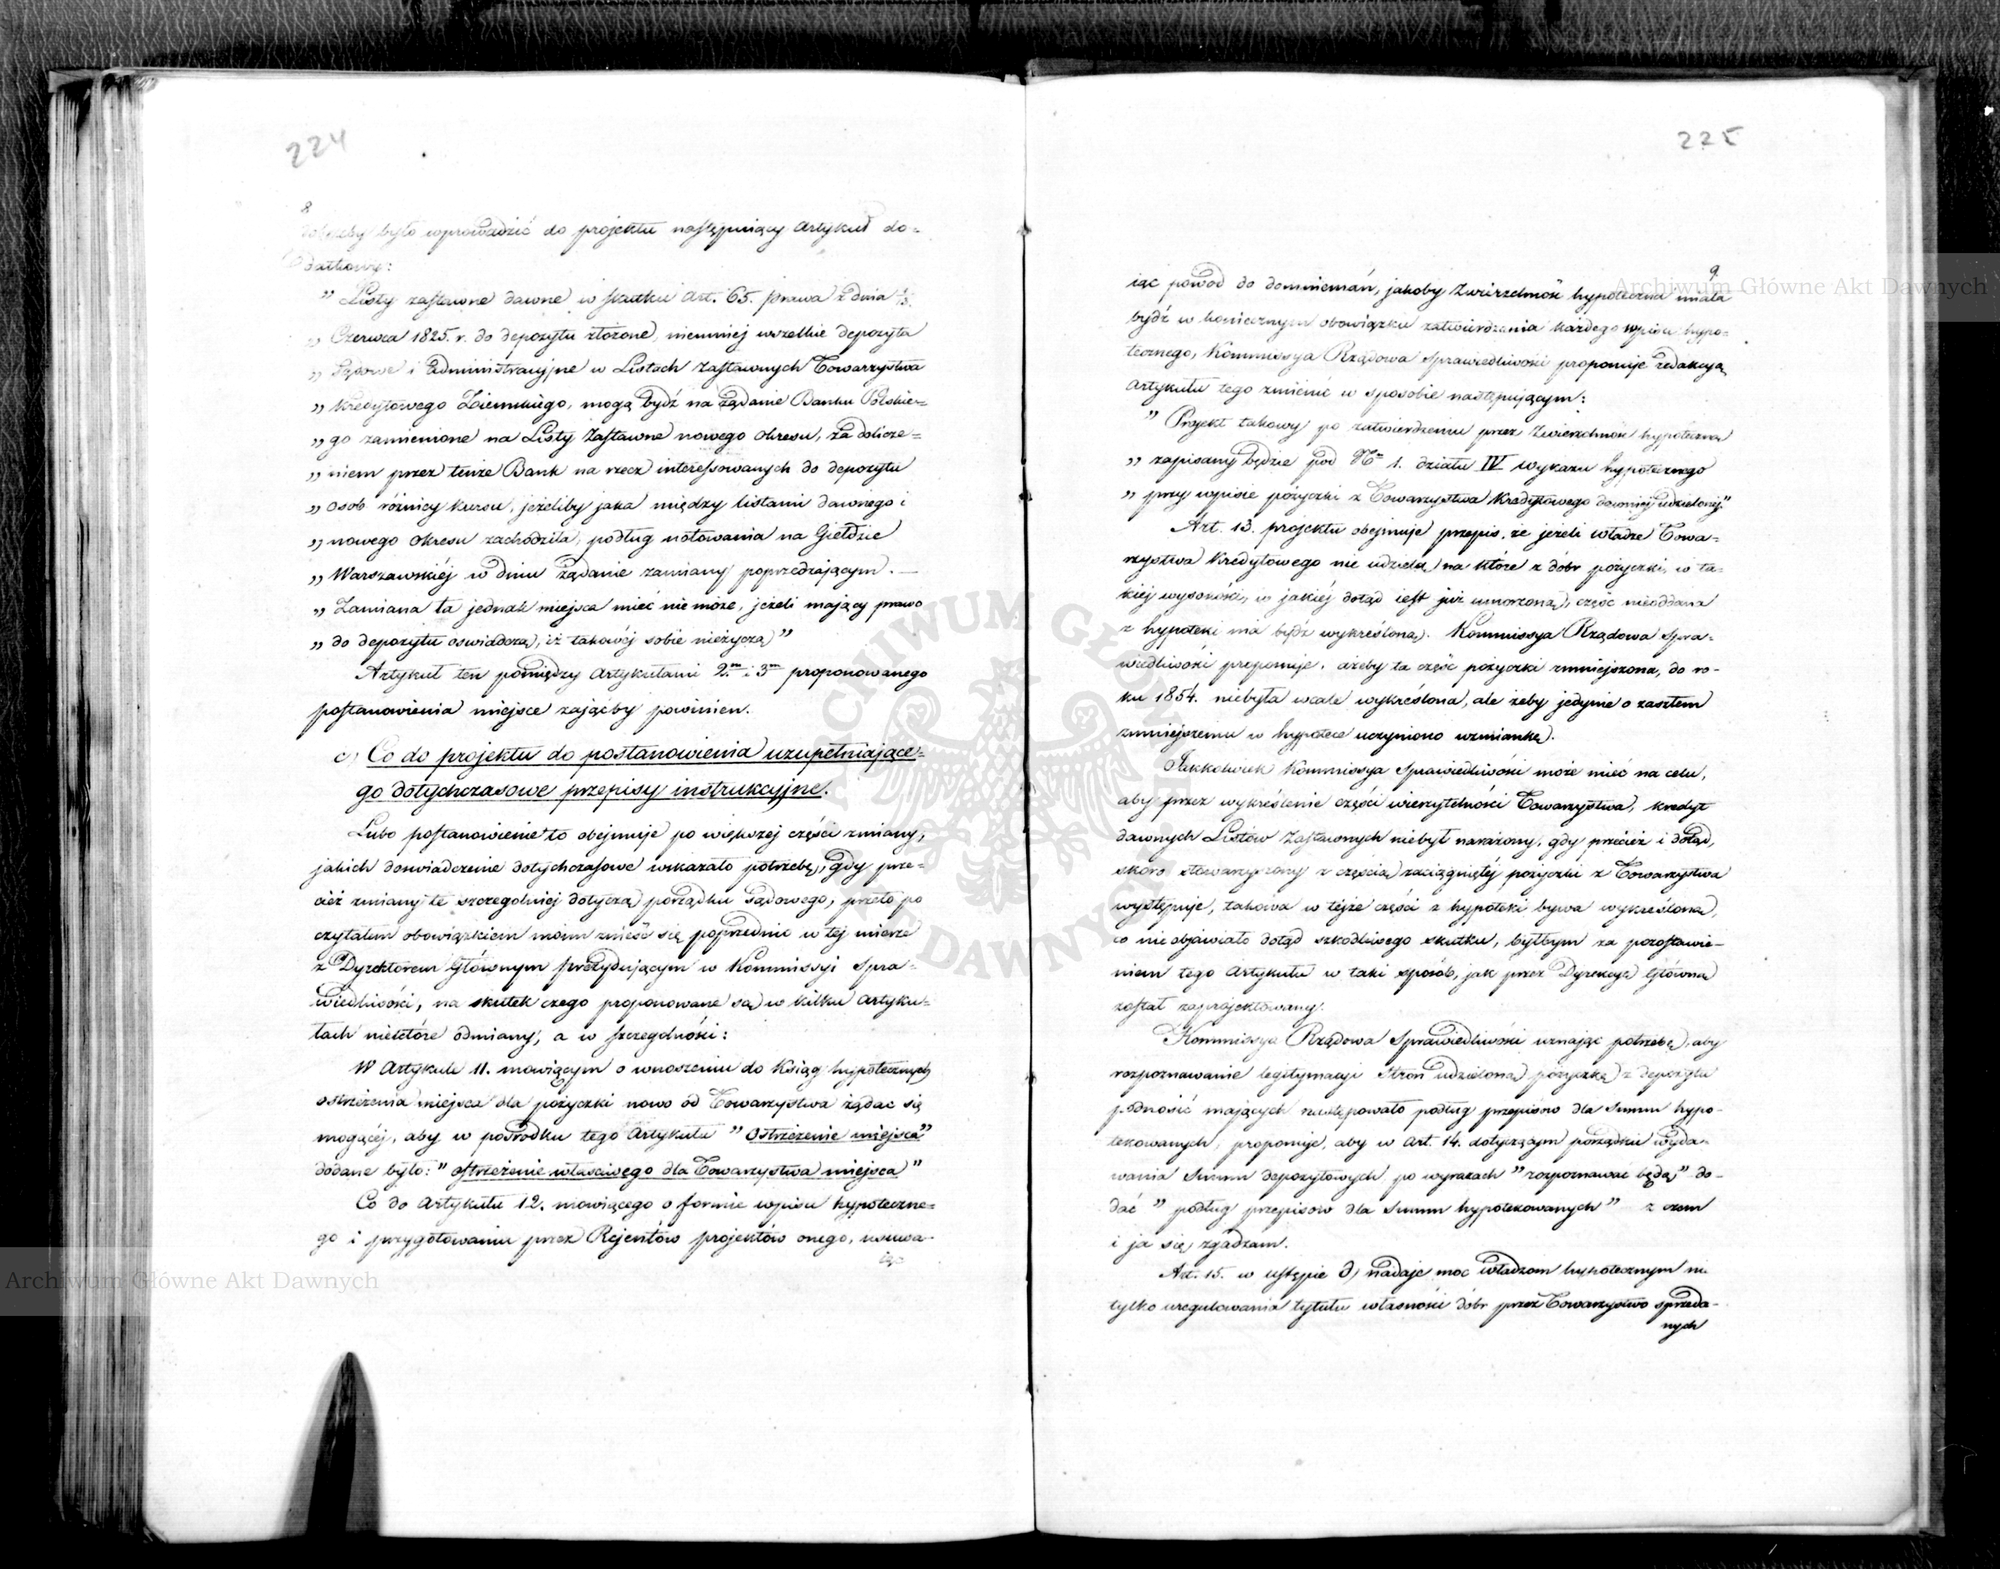 224
8
było wprowadzić do projektu następujący Artykuł do-
datkowy:
" Listy zastawne dawne w skutku Art. 65. prawa z dnia 1/13.
„ Czerwca 1825. r. do depozytu złożone, niemniej wszelkie depozyta
„ Sądowe i Administracyjne w Listach Zastawnych Towarzystwa
„ Kredytowego Ziemskiego, mogą bydź na żądanie Banku Polskie-
„ go zamienione na Listy Zastawne nowego Okresu, za dolicze-
„ niem przez tenże Bank na rzecz interessowanych do depozytu
„ osób różnicy kursu, jeżeliby jaka między listami dawnego i
„ nowego Okresu zachodziła, podług notowania na Giełdzie
„ Warszawskiéj w dniu żądanie zamiany poprzedzającym. —
„ Zamiana ta jednak miejsca mieć nie może, jeżeli mający prawo
„ do depozytu oświadczą, iż takowéj sobie nieżyczą"
Artykuł ten pomiędzy Artykułami 2m i 3m proponowanego
postanowienia miejsce zająćby powinien.
c) Co do projektu do postanowienia uzupełniające-
go dotychczasowe przepisy instrukcyjne.
Lubo postanowienie to obejmuje po większej części zmiany,
jakich doświadczenie dotychczasowe wskazało potrzebę, gdy prze-
cież zmiany te szczególniej dotyczą porządku Sądowego, przeto po
czytałem obowiązkiem moim znieść się poprzednio w tej mierze
z Dyrektorem Głównym prezydującym w Kommissyi Spra-
wiedliwości, na skutek czego proponowane są w kilku Artyku-
łach niektóre odmiany, a w szczególności:
W Artykule 11. mowiącym o wnoszeniu do Ksiąg hypotecznych
ostrzeżenia miejsca dla pożyczki nowo od Towarzystwa żądać się
mogącéj, aby w pośrodku tego Artykułu "Ostrzeżenie miejsca"
dodane było: "ostrzeżenie właściwego dla Towarzystwa miejsca"
Co do Artykułu 12. mowiącego o formie wpisu hypoteczne-
go i przygotowaniu przez Rejentów projektów onego, usuwa-
iąc
225
9
iąc powod do domniemań, jakoby Zwierzchność hypoteczna miała
bydź w koniecznym obowiązku zatwierdzania każdego wpisu hypo-
tecznego, Kommissya Rządowa Sprawiedliwości proponuje redakcyą
Artykułu tego zmienić w sposobie następującym:
" Projekt takowy po zatwierdzeniu przez Zwierzchność hypoteczną
„ zapisany będzie pod No 1. działu IV wykazu hypotecznego
„ przy wpisie pożyczki z Towarzystwa Kredytowego dawniej udzielonej."
Art. 13. projektu obejmuje przepis, że jeżeli władze Towa-
rzystwa Kredytowego nie udzielą na które z dóbr pożyczki, w ta-
kiéj wysokości, w jakiéj dotąd jest już umorzoną, część nieoddana
z hypoteki ma bydź wykreśloną. Kommissya Rządowa Spra-
wiedliwości proponuje, ażeby ta część pożyczki zmniejszona, do ro-
ku 1854. niebyła wcale wykreślona, ale żeby jedynie o zaszłem
zmniejszeniu w hypotece uczyniono wzmiankę.
Jakkolwiek Kommissya Sprawiedliwości może mieć na celu,
aby przez wykreślenie części wierzytelności Towarzystwa, kredyt
dawnych Listów Zastawnych niebył narażony, gdy przecież i dotąd,
skoro stowarzyszony z częścią zaciągniętéj pożyczki z Towarzystwa
występuje, takowa w tejże części z hypoteki bywa wykreśloną,
co nie objawiało dotąd szkodliwego skutku, byłbym za pozostawie-
niem tego Artykułu w taki sposób, jak przez Dyrekcyą Główną
został zaprojektowany.
Kommissya Rządowa Sprawiedliwości uznając potrzebę, aby
rozpoznawanie legitymacyi Stron udzieloną pożyczkę z depozytu
podnosić mających następowało podług przepisów dla Summ hypo-
tekowanych, proponuje, aby w Art. 14. dotyczącym porządku wyda-
wania Summ depozytowych po wyrazach "rozpoznawać będą" do-
dać "podług przepisow dla Summ hypotekowanych" z czem
i ja się zgadzam.
Art. 15. w ustępie d) nadaje moc władzom hypotecznym nie
tylko uregulowania tytułu własności dóbr przez Towarzystwo sprzeda-
nych
Archiwum Główne Akt Dawnych
Archiwum Główne Akt Dawnych
ARCHIWUM GŁÓWNE AKT DAWNYCH